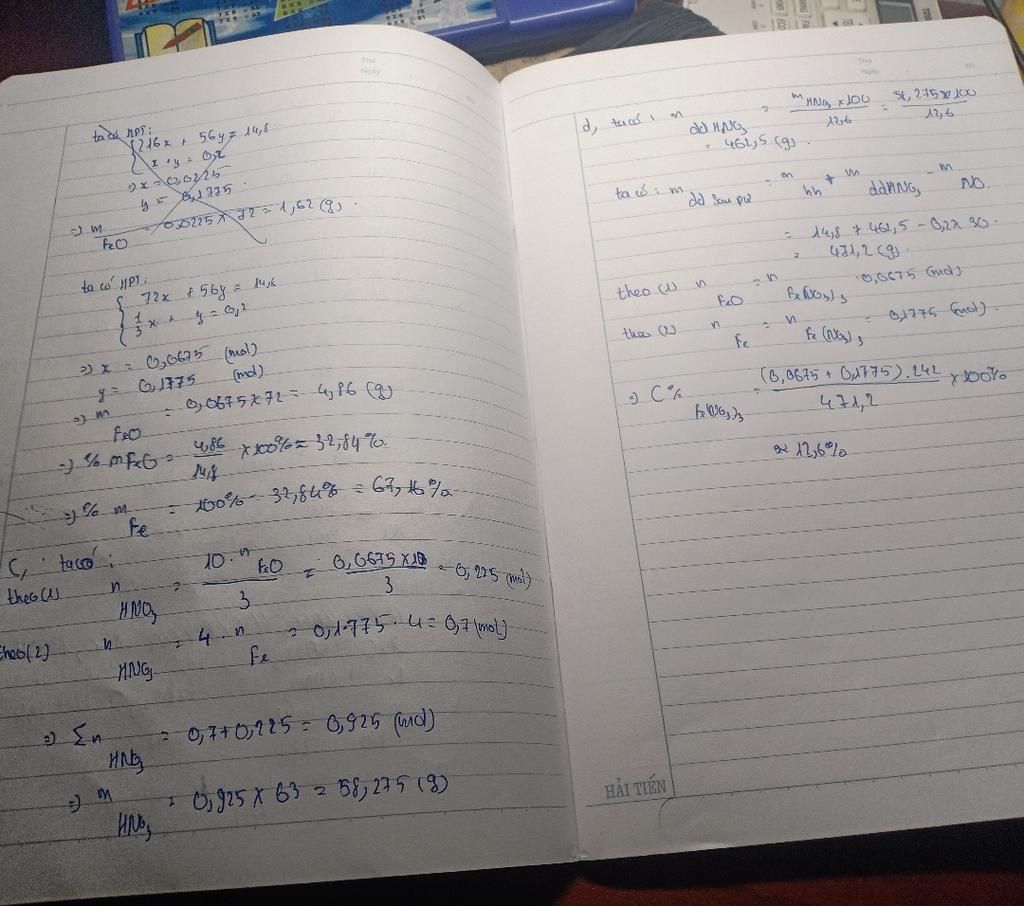 Thứ
Ngày
ta có HPT:
216x + 56y = 14,8
x + y = 0,2
=> x = 0,0225
y = 0,1775
=> m FeO = 0,0225 x 72 = 1,62 (g).
ta có HPT:
72x + 56y = 14,8
1/3 x + y = 0,2
=> x = 0,0675 (mol)
y = 0,1775 (mol)
=> m FeO = 0,0675 x 72 = 4,86 (g)
=> % mFeO = 4,86/14,8 x 100% = 32,84%.
=> % m Fe = 100% - 32,84% = 67,16%
C, ta có:
theo (1) n HNO3 = 10.n FeO / 3 = 0,0675 x 10 / 3 = 0,225 (mol)
theo (2) n HNO3 = 4.n Fe = 0,1775 . 4 = 0,7 (mol)
=> Σn HNO3 = 0,7 + 0,225 = 0,925 (mol)
=> m HNO3 = 0,925 x 63 = 58,275 (g)
Thứ
Ngày
No.
d, ta có: m dd HNO3 = m HNO3 x 100 / 12,6 = 58,275 x 100 / 12,6
= 462,5 (g).
ta có: m dd sau pứ = m hh + m ddHNO3 - m NO.
= 14,8 + 462,5 - 0,2 x 30
= 471,2 (g).
theo (1) n FeO = n Fe(NO3)3 0,0675 (mol)
theo (2) n Fe = n Fe(NO3)3 = 0,1775 (mol).
=> C% Fe(NO3)3 = (0,0675 + 0,1775).242 / 471,2 x 100%
≈ 12,6%
HẢI TIẾN